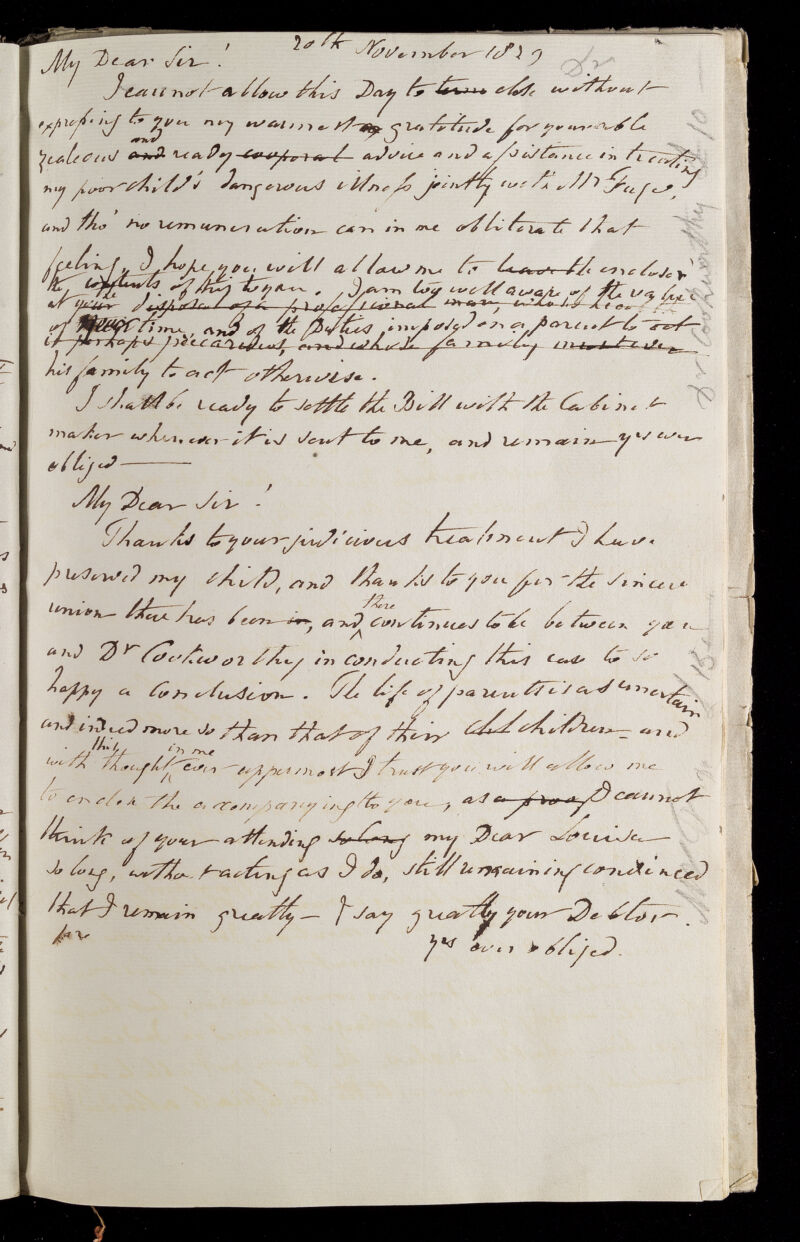 20th November 1829
My Dear Sir!
I cannot allow this Day to term close without
expressing to you my warmest gratitude for your able
zealous and and ready corporal advice and assistance in treating
my poor child's dangerous illness jointly with Mr Fuge,
and tho' no remuneration can in me obliterate that
feeling, I hope you will allow me to the enclose
the contents of this to you. I am too well aware of the value
at your the disposal of a professional man, who is
of time, and of the Duties imposed on a parent to act
it perhaps precarious, and whose family must ever
his family to act otherwise.
I shall be ready to settle the Bill with the Cabinet
maker whenever it is sent to me, and remain yrs ever
obliged
My Dear Sir!
Thanks to your judicious treatment I have
preserved my child, and thanks to you for the sincere
union there has been in, and there continues to be between you
and Dr Cookworthy in conducting this case to so
happy a conclusion. The life of parents is as uncertain
and indeed more so than that of their children - and
with this thought in me ever uppermost I trust you will allow me
to enclose the accompanying to you, as a proof I cannot
think of your attending so long my Dear Louisa
so long, without acting as I do, still remaining convinced
that I remain greatly - I say greatly your Debtor.
yrs ever obliged.
Dr
Dr Cookworthy 10